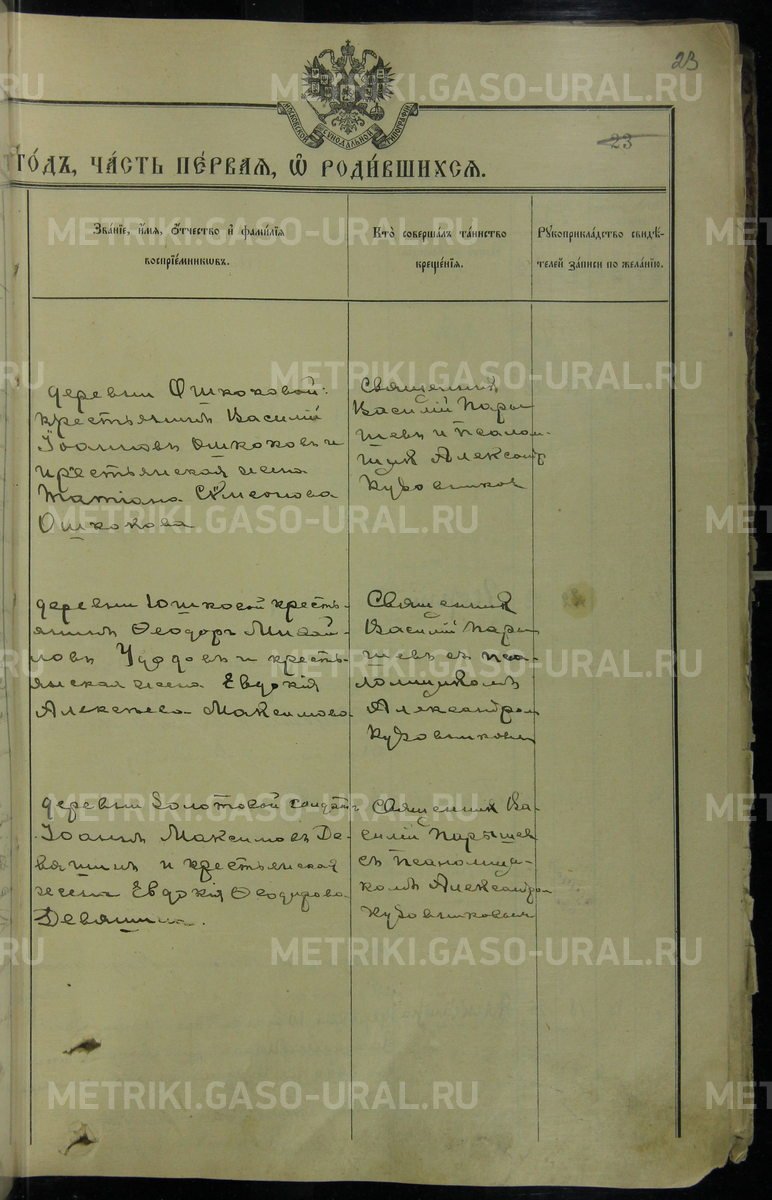 23
23
МОСКОВСКОЙ СУНОДАЛЬНОЙ ТИПОГРАФІИ
ГО́ДЪ, ЧА́СТЬ ПЕ́РВАЯ, Ѡ҆ РОДИ́ВШИХСЯ.
Зва́нїе, и҆́мя, ѻ҆́тчество и҆ фами́лїя
воспрїе́мникѡвъ.
Кто̀ соверша́лъ та́инство
креще́нїя.
Рꙋкоприкла́дство свидѣ́-
телей за́писи по жела́нїю.
деревни Ошкоковой
крестьянинъ Василій
Іоанновъ Ошкоковъ и
крестьянская жена
Татіана Симонова
Ошкокова
Священникъ
Василій Пары
шевъ и псалом
щикъ Александръ
Кузовников
деревни Юшковой кресть-
янинъ Ѳеодоръ Михай-
ловъ Чудовъ и кресть-
янская жена Евдокія
Алексѣева Максимова
Священникъ
Василій Пары
шевъ съ пса-
ломщикомъ
Александром
Кузовниковым
деревни Золотовой солдатъ
Іоаннъ Максимовъ Де-
вяшинъ и крестьянская
жена Евдокія Ѳеодорова
Девяшина.
Священникъ Ва-
силій Парышев
съ псаломщи-
комъ Александром
Кузовниковым
METRIKI.GASO-URAL.RU